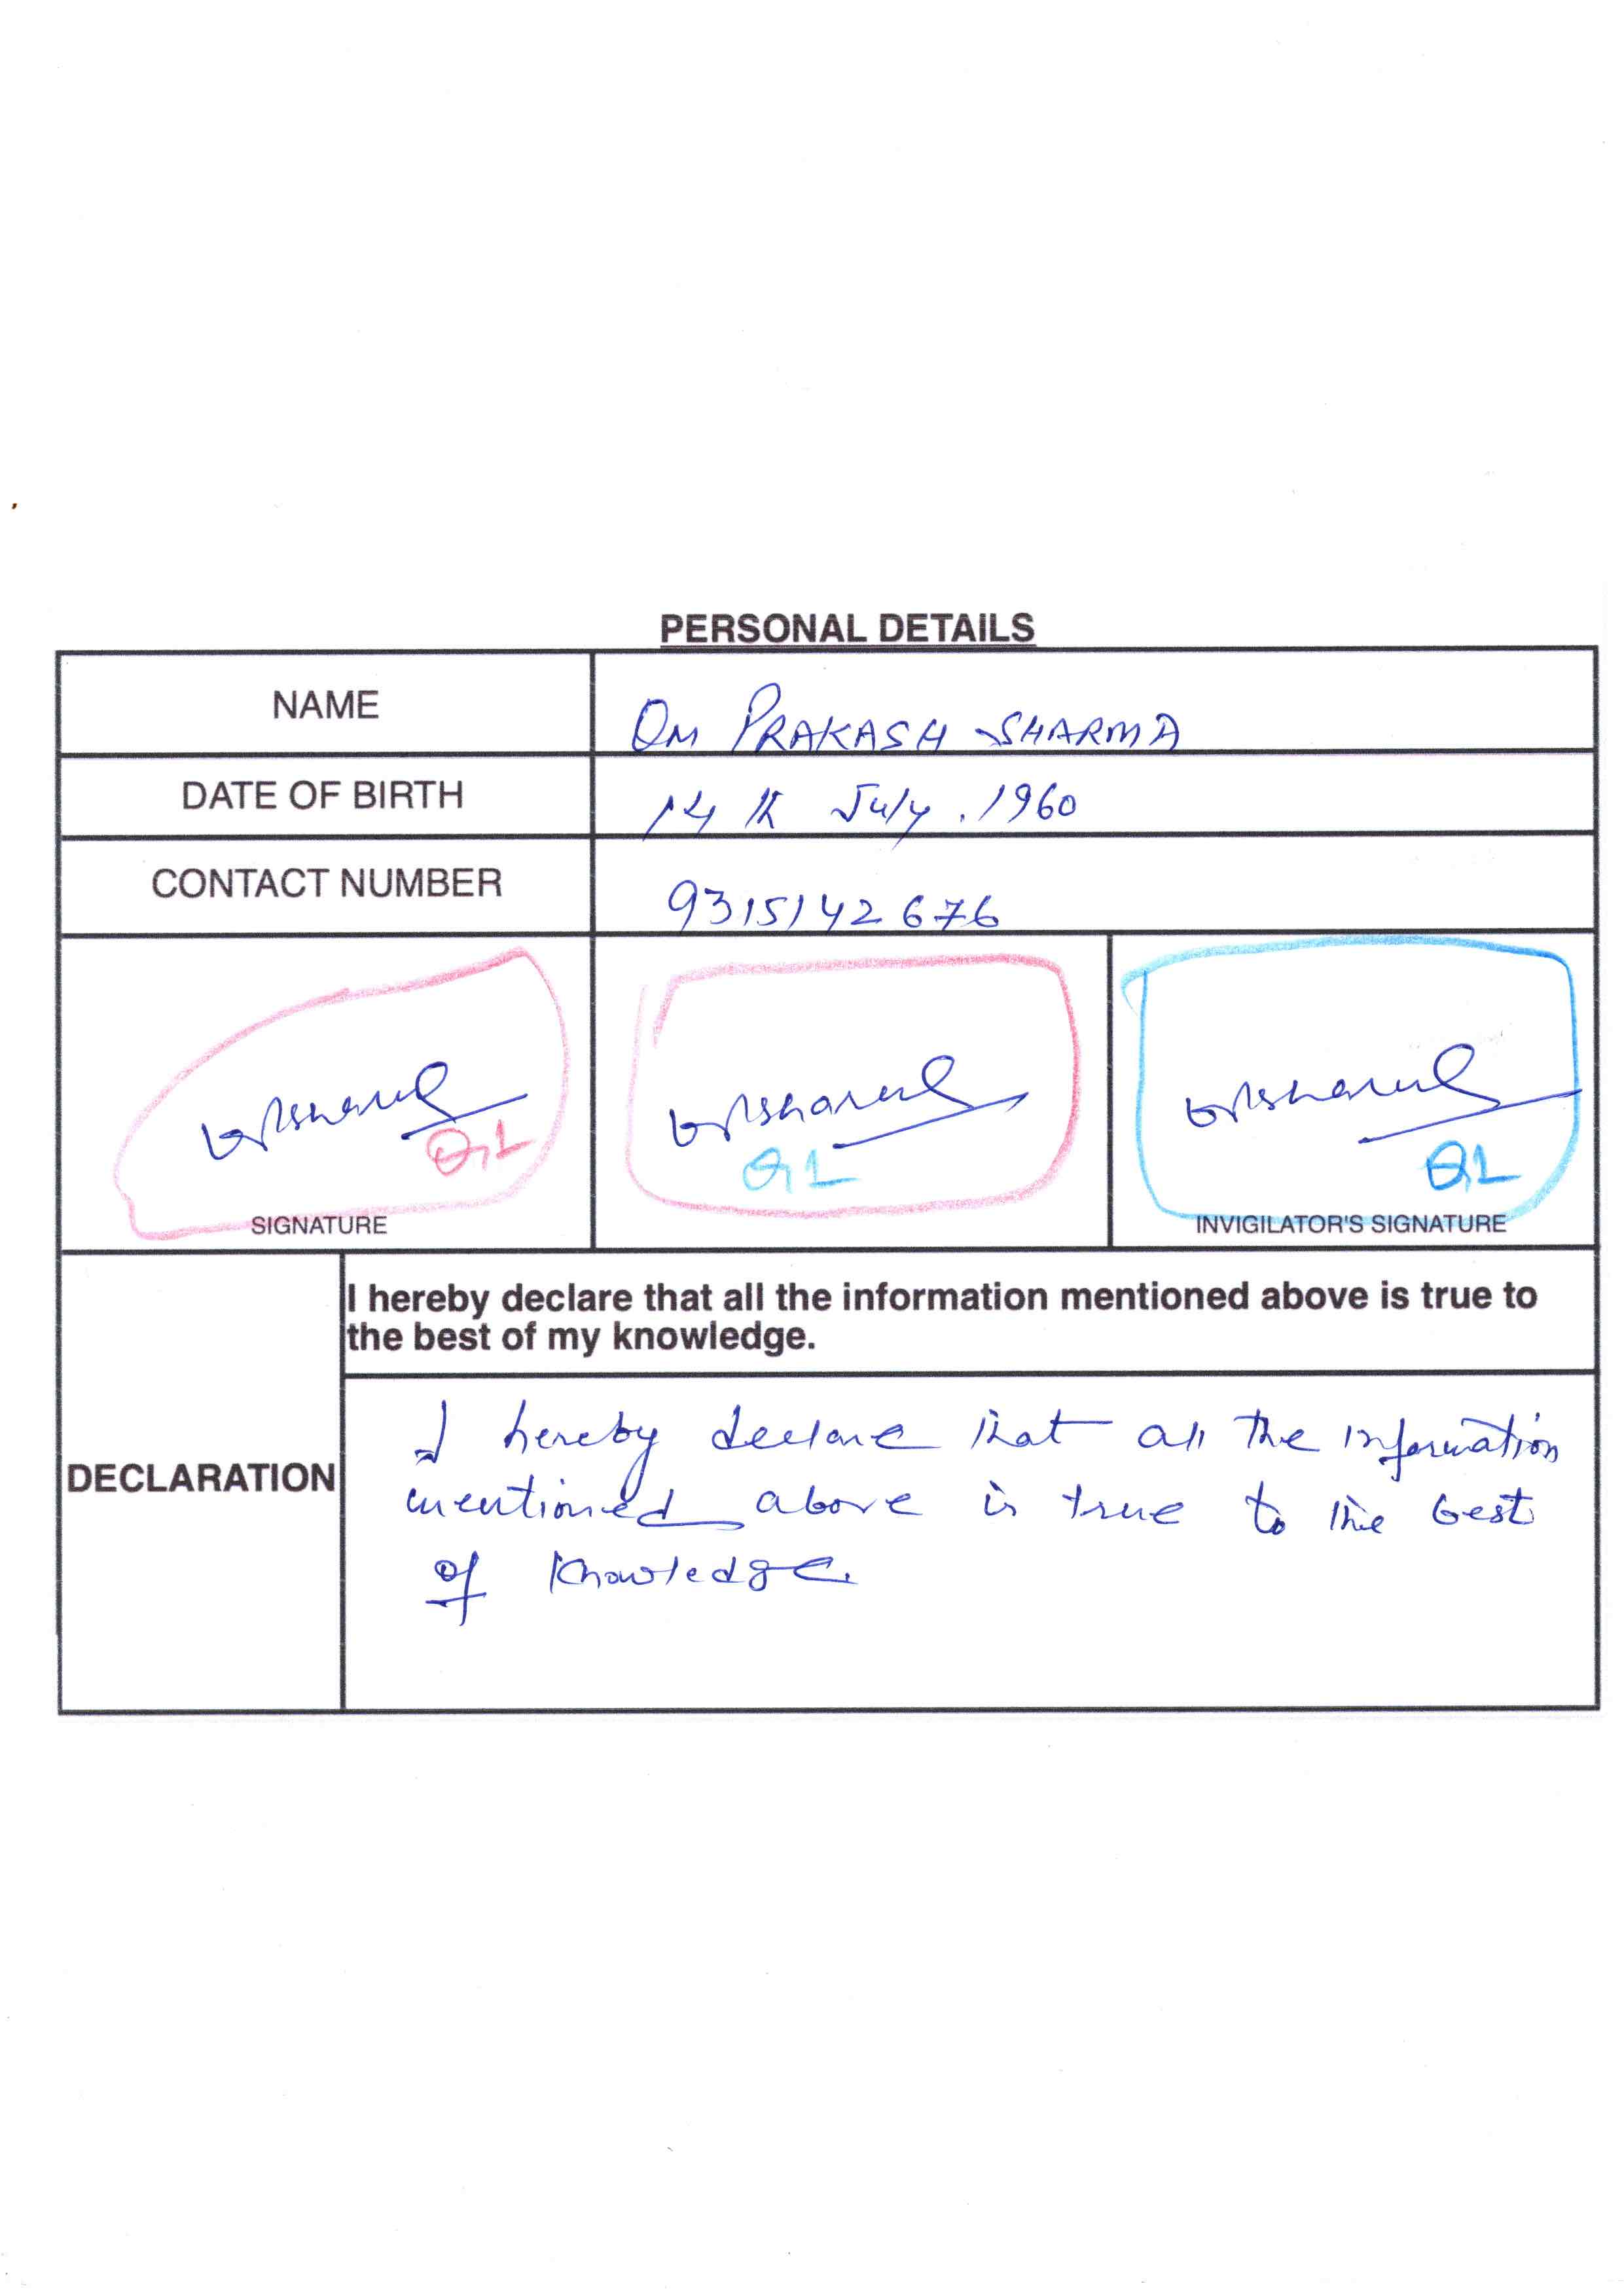 PERSONAL DETAILS
NAME
OM PRAKASH SHARMA
DATE OF BIRTH
14 th July . 1960
CONTACT NUMBER
9315142676
Q1
Q1
Q1
SIGNATURE
INVIGILATOR'S SIGNATURE
I hereby declare that all the information mentioned above is true to
the best of my knowledge.
DECLARATION
I hereby declare that all the information
mentioned above is true to the best
of knowledge.